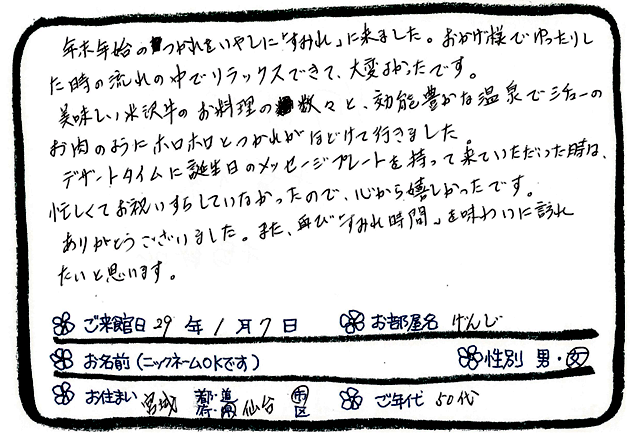 年末年始のつかれをいやしに「すみれ」に来ました。おかげ様でゆったりし
た時の流れの中でリラックスできて、大変よかったです。
美味しい米沢牛のお料理の数々と、効能豊かな温泉でシチューの
お肉のようにホロホロとつかれがほどけて行きました。
デザートタイムに誕生日のメッセージプレートを持って来ていただいた時は、
忙しくてお祝いすらしていなかったので、心から嬉しかったです。
ありがとうございました。また、再び「すみれ時間」を味わいに訪れ
たいと思います。
ご来館日 29 年 1 月 7 日 お部屋名 げんじ
お名前(ニックネームOKです) 性別 男・女
お住まい 宮城 都・道 府・県 仙台 市 区 ご年代 50代